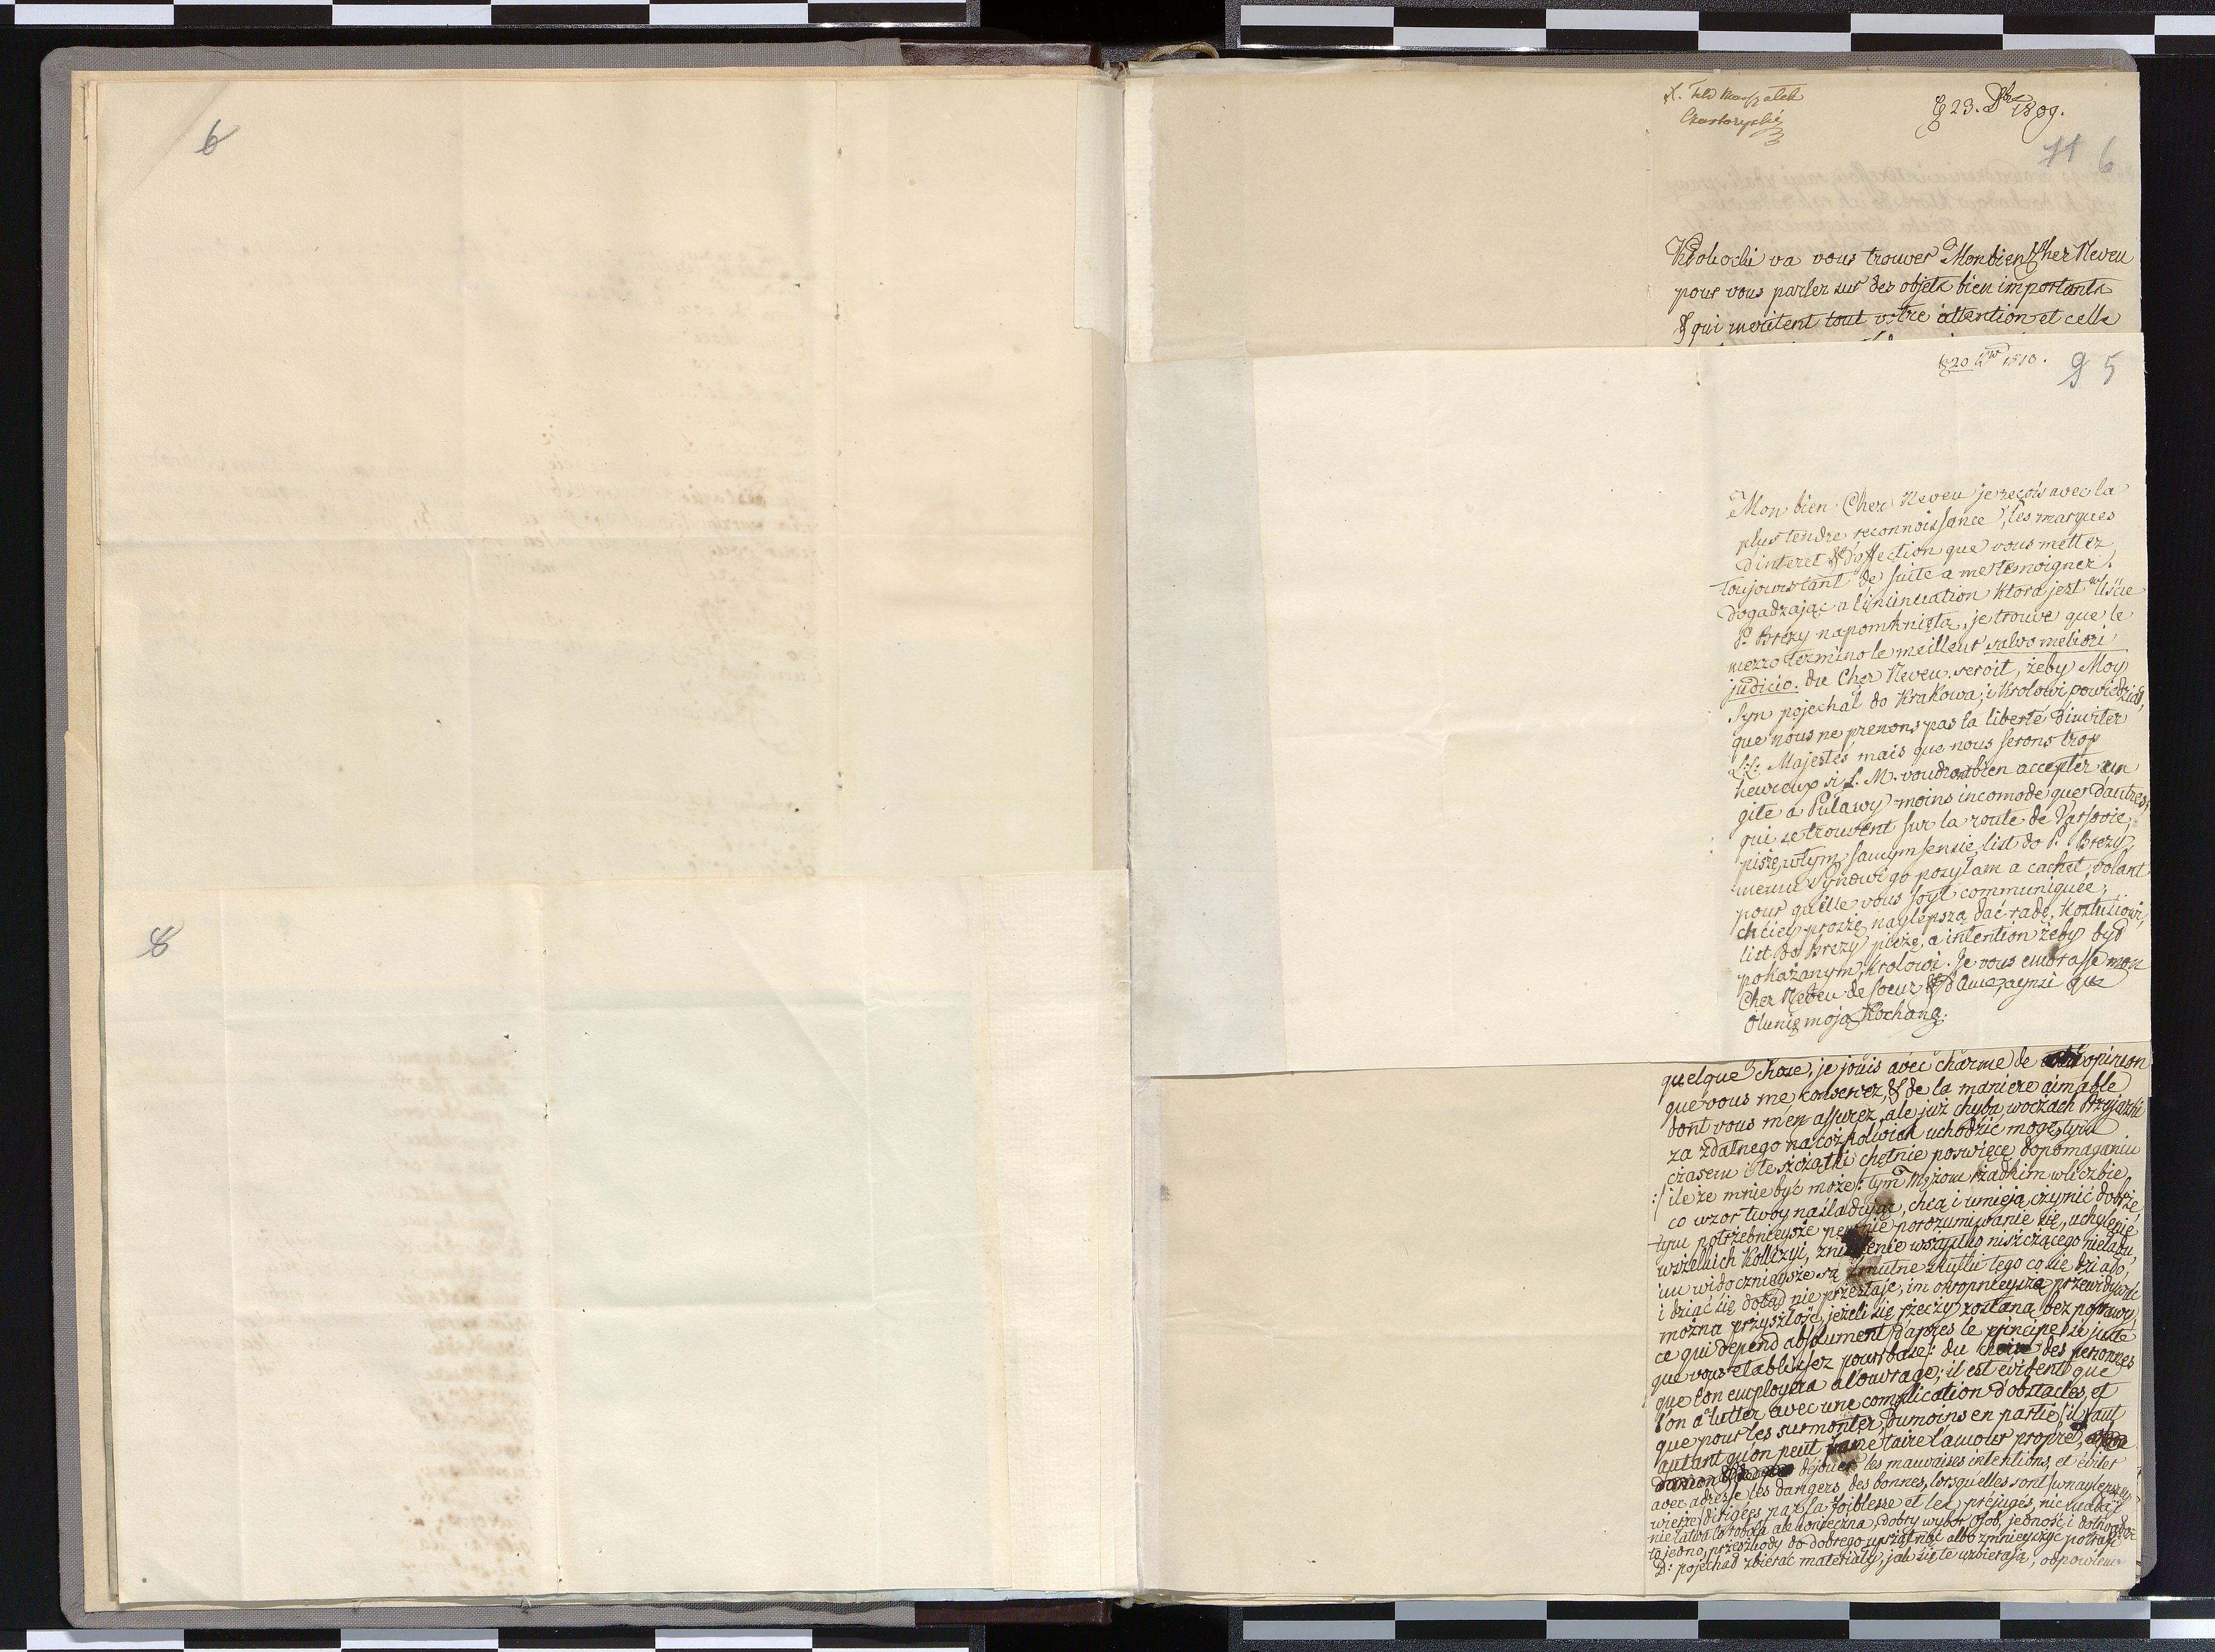 6
8
X. Feld Marszałek
Czartoryski
23. Xbre 1809.
11 6
va vous trouver Mon bien Cher Neveu
pour vous parler sur des objets bien importants
& qui meritent tout votre attention et celle
20 1810.
9 5
Mon bien Cher Neveu je reçois avec la
plus tendre reconnoissance, les marques
d'interet & d'affection que vous mettez
toujours tant de suite a me temoigner.
Dogadzając a l'insinuation ktora jest w liście
P. Brezy napomknięta, je trouve que le
mezzo termino le meilleur salvo meliori
judicio. du Cher Neveu. seroit, żeby Moy
Syn pojechał do Krakowa, i Krolowi powiedział,
que nous ne prenons pas la liberté d'inviter
L.L. Majestés mais que nous serons trop
heureux si L. M. voudront bien accepter un
gite a Pulawy moins incomode que d'autres,
qui se trouvent sur la route de Varsovie,
piszę w tym samym sensie list do P. Brezy,
memu Synowi go posyłam a cachet volant
pour qu'elle vous soyt communiquée,
chciey proszę naylepszą dać radę, Kostusiowi,
list do Brezy piszę, a intention żeby był
pokazanym Krolowi. Je vous embrasse mon
Cher Neveu de coeur & d'ame, aynsi que
Olunię moją Kochaną.
quelque chose, je jouis avec charme de opinion
que vous me conservez, & de la maniere aimable
dont vous m'en assurez, ale już chyba w oczach Przyjaźni
za zdatnego na cożkolwiek uchodzić mogę, tym
czasem i te szczątki chętnie poswięcę dopomaganiu
:/ ile ze mnie być może :/ tym Mężom rzadkim w liczbie,
co wzor twoy naśladując, chcą i umieją czynić dobrze,
tym potrzebnieysze pewnie porozumiwanie się, uchylenie
wszelkich Kollizyi, zniszczenie wszystko niszczącego nieładu,
im widocznieysze są smutne skutki tego co się działo,
i dziać się dotąd nie przestaje, im okropnieyszą przewidywać
można przyszłość, jeżeli się rzeczy zostaną bez poprawy,
ce qui depend absolument d'apres le principe si juste
que vous etablissez pour base: du choix des personnes
que l'on employera a l'ouvrage; il est evident que
l'on a lutter avec une complication d'obstacles, et
que pour les surmonter, dumoins en partie, il faut
autant qu'on peut faire taire l'amour propre,
dejouer les mauvaises intentions, et eviter
avec adresse les dangers, des bonnes, lorsqu'elles sont
dirigées par la foiblesse et les prejugés,
nie łatwa to robota ale konieczna, dobry wybor osob, jedność i
to jedno, przeszkody do dobrego uprzątnąć albo zmnieyszyć potrafi
D: pojechał zbierać materiały, jak się te uzbierają, odpowiem